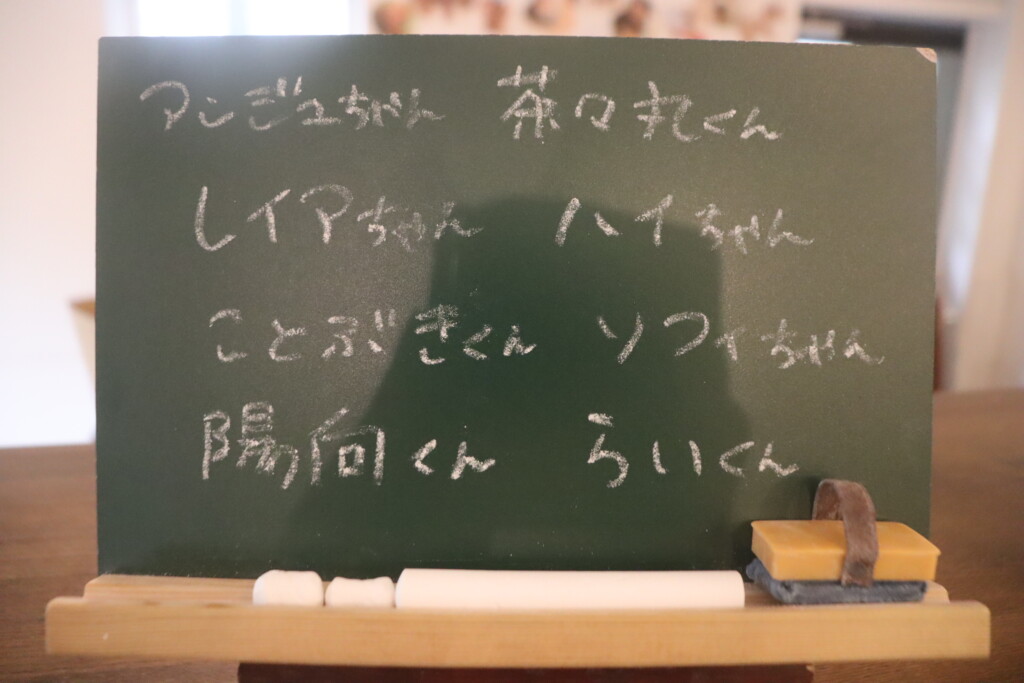 アンジュちゃん 茶々丸くん
レイアちゃん ハイちゃん
ことぶきくん ソフィちゃん
陽向くん らいくん